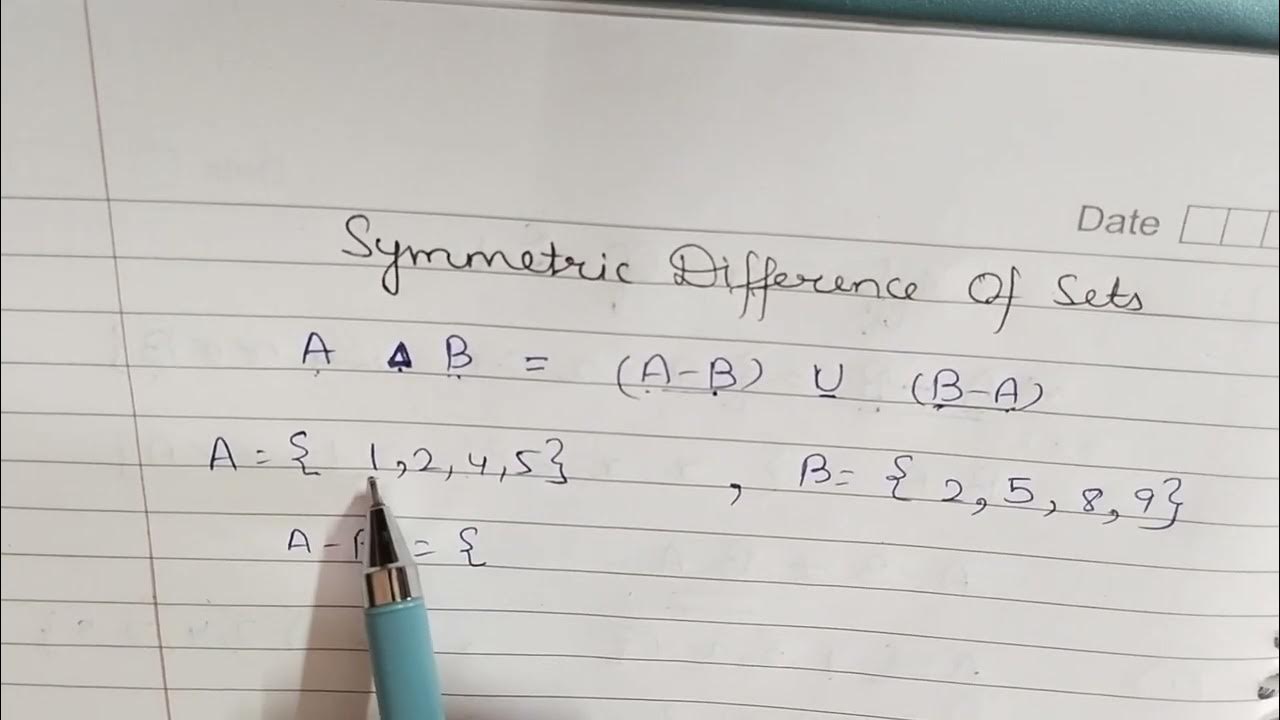 Date
Symmetric Difference Of Sets
A Δ B = (A-B) ∪ (B-A)
A = { 1,2,4,5} , B= { 2,5,8,9}
A - = {